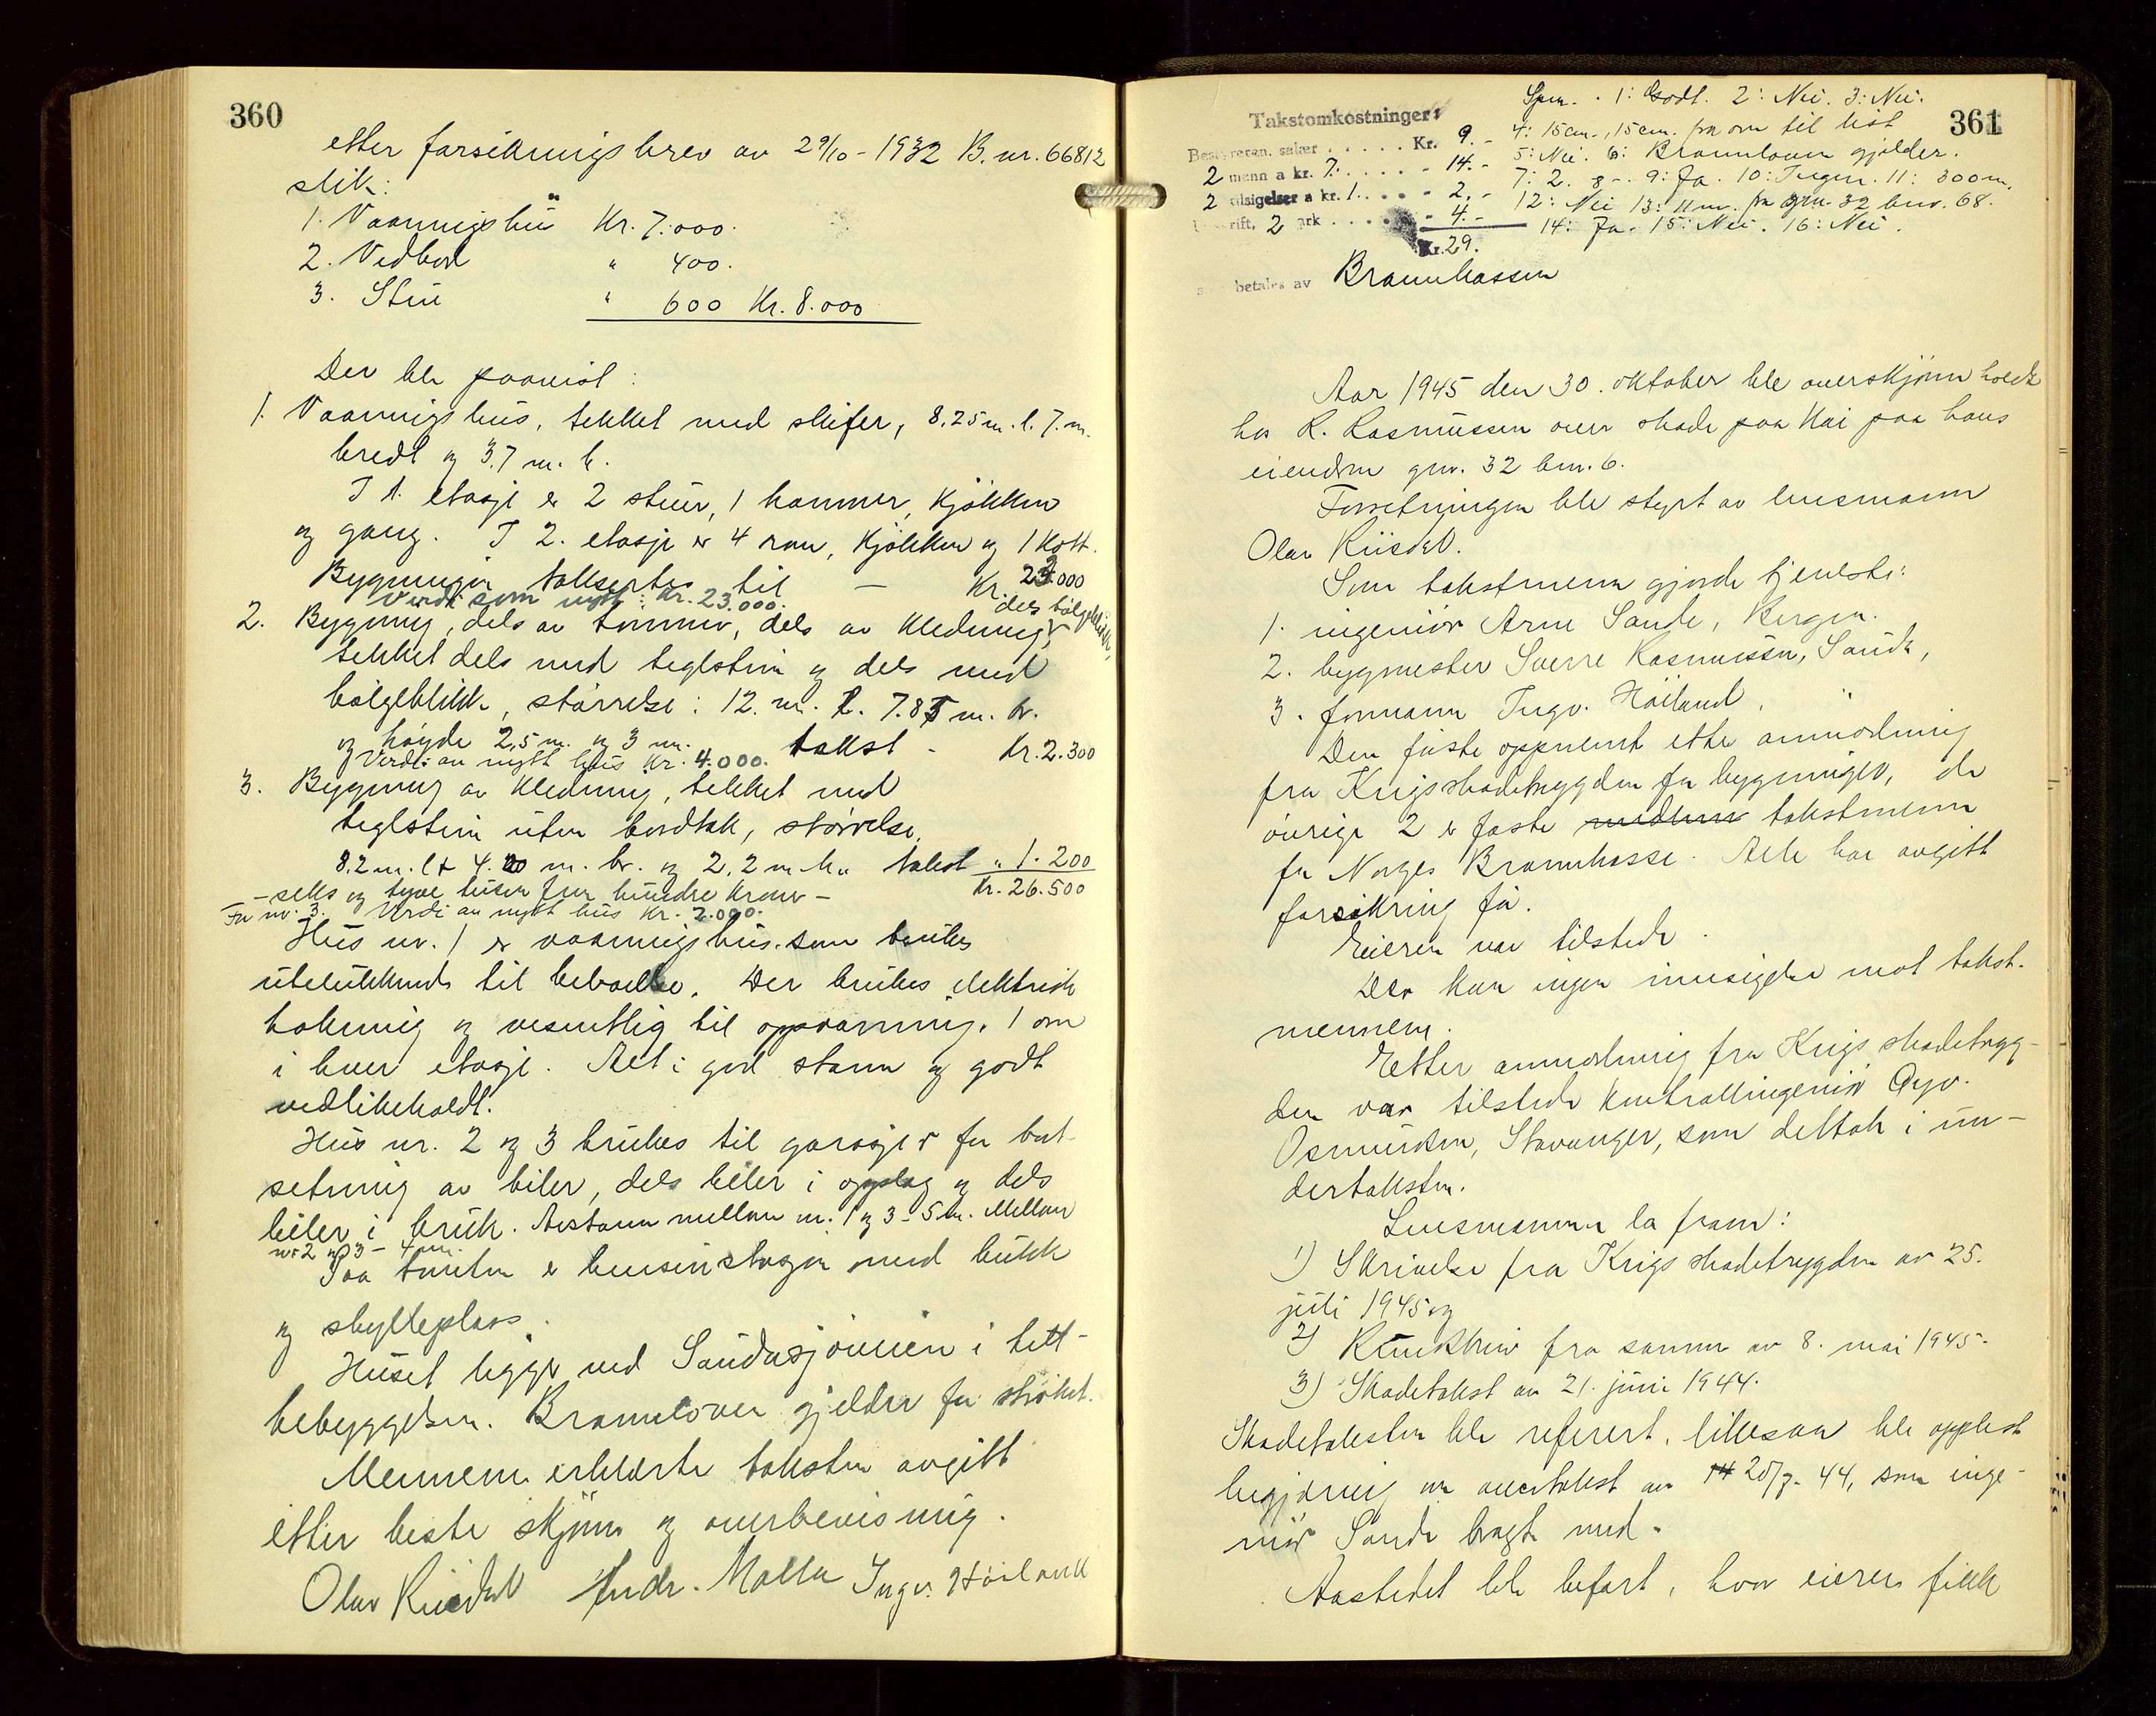 360
etter forsikringsbrev av 29/10-1932 B. nr. 66812
slik:
1. Vaaningshus Kr. 7.000.
2. Vedbod " 400.
3. Stue " 600 Kr. 8.000
Der ble paavist:
1. Vaaningshus, tekket med skifer, 8,25 m. l. 7. m.
bredt og 3.7 m. h.
I 1. etasje er 2 stuer, 1 kammer, kjøkken
og gang. I 2. etasje er 4 rom, kjøkken og 1 kott.
Bygningen takseres til — Kr. 23.000
Verdi som nytt: Kr. 23.000.
dels bølgeblikk,
2. Bygning, dels av tømmer, dels av kledning,
tekket dels med teglstein og dels med
bølgeblikk, størrelse: 12. m. l. 7.85 m. br.
og høyde 2,5 m. og 3 m. takst - Kr. 2.300
Verdi av nytt hus Kr. 4.000.
3. Bygning av kledning, tekket med
teglstein uten bordtak, størrelse
8,2 m. l. + 4.20 m. br. og 2,2 m h. takst " 1.200
- seks og tyve tusen fem hundre kroner - Kr. 26.500
For nr. 3. Verdi av nytt hus Kr. 2.000.
Hus nr. 1 er vaaningshus som brukes
utelukkende til beboelse. Der brukes elektrisk
kokning og vesentlig til oppvarming. 1 ovn
i hver etasje. Alt i god stann og godt
vedlikeholdt.
Hus nr. 2 og 3 brukes til garasjer for bort-
setning av biler, dels biler i opplag og dels
biler i bruk. Avstann mellom nr. 1 og 3 - 5 m. Mellom
nr 2 og 3 - 4 m.
Paa tomten er bensinstasjon med butik
og skylleplass.
Huset ligger ved Saudasjøveien i tett-
bebyggelsen. Brannloven gjelder for strøket.
Mennene erklærte taksten avgitt
etter beste skjønn og overbevisning.
Olav Riisdal Andr. Molla Ingv. Høiland
361
Takstomkostninger:
Bestyreren. salær . . . . . Kr. 9.-
2 menn a kr. 7. . . . . - 14.-
2 tilsigelser a kr. 1. . . . - 2.-
rift, 2 ark . . . . . - 4.-
Kr. 29.
betales av Brannkassen
Spm. 1: Godt. 2: Nei. 3: Nei.
4: 15 cm., 15 cm. fra ovn til list
5: Nei. 6: Brannloven gjelder.
7: 2. 8 -. 9: Ja. 10: Ingen. 11: 300 m.
12: Nei 13: 11 m. fra gnr. 32 bnr. 68.
14: Ja. 15: Nei. 16: Nei.
Aar 1945 den 30. oktober ble overskjønn holdt
hos R. Rasmussen over skade paa kai paa hans
eiendom gnr. 32 bnr. 6.
Forretningen ble styrt av lensmann
Olav Riisdal.
Som takstmenn gjorde tjeneste:
1. ingeniør Arne Sande, Bergen.
2. bygmester Sverre Rasmussen, Sauda,
3. formann Ingv. Høiland, "
Den første oppnemt etter anmodning
fra Krigsskadetrygden for bygninger, de
øvrige 2 er faste medlem takstmenn
for Norges Brannkasse. Alle har avgitt
forsikring før.
Eieren var tilstede.
Der kom ingen innsigelse mot takst-
mennene.
Etter anmodning fra Krigsskadetryg-
den var tilstede kontrollingeniør Ogv.
Osmundsen, Stavanger, som deltok i un-
dertaksten.
Lensmannen la fram:
1) Skrivelse fra Krigsskadetrygden av 25.
juli 1945 og
2) Rundskriv fra samme av 8. mai 1945.
3) Skadetakst av 21. juni 1944.
Skadetaksten ble referert, likesaa ble opplest
begjæring om overtakst av 14 20/7-44, som inge-
niør Sande bragte med.
Aastedet ble befart, hvor eieren fikk